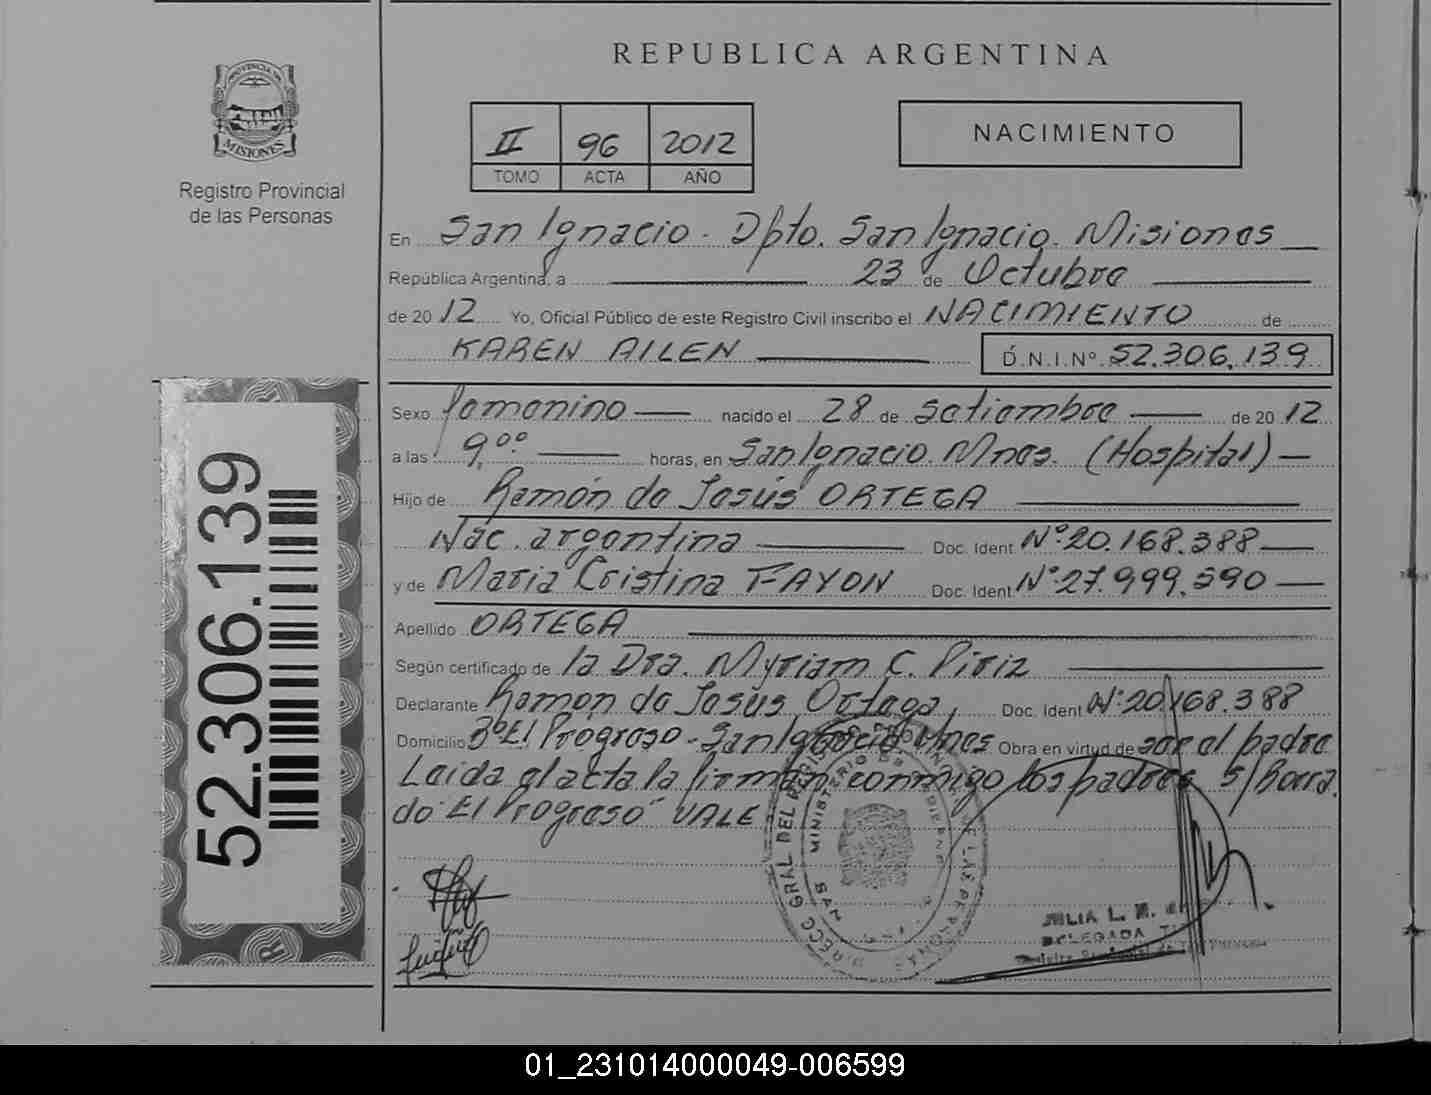 REPUBLICA ARGENTINA
PROVINCIA DE
MISIONES
Registro Provincial
de las Personas
II 96 2012
TOMO ACTA AÑO
NACIMIENTO
En San Ignacio - Dpto. San Ignacio. Misiones
República Argentina, a 23 de Octubre
de 2012 Yo, Oficial Público de este Registro Civil inscribo el NACIMIENTO de
KAREN AILEN D.N.I.Nº 52.306.139
Sexo femenino nacido el 28 de setiembre de 2012
a las 9,00 horas, en San Ignacio. Mnes. (Hospital)
Hijo de Ramón de Jesús ORTEGA
Nac. argentina Doc. Ident. Nº 20.168.388
y de Maria Cristina FAYON Doc. Ident. Nº 27.999.590
Apellido ORTEGA
Según certificado de la Dra. Myriam C. Piriz
Declarante Ramon de Jesús Ortega, Doc. Ident. Nº 20168.388
Domicilio Bº El Progreso - San Ignacio Mnes Obra en virtud de ser el padre
Leida el acta la firman conmigo los padres S/Borra.
do "El Progreso" VALE
DIRECC GRAL DEL REGISTRO PROVINCIAL DE LAS PERSONAS
MINISTERIO DE GOBIERNO
JULIA L.
DELEGADA
52.306.139
01_231014000049-006599